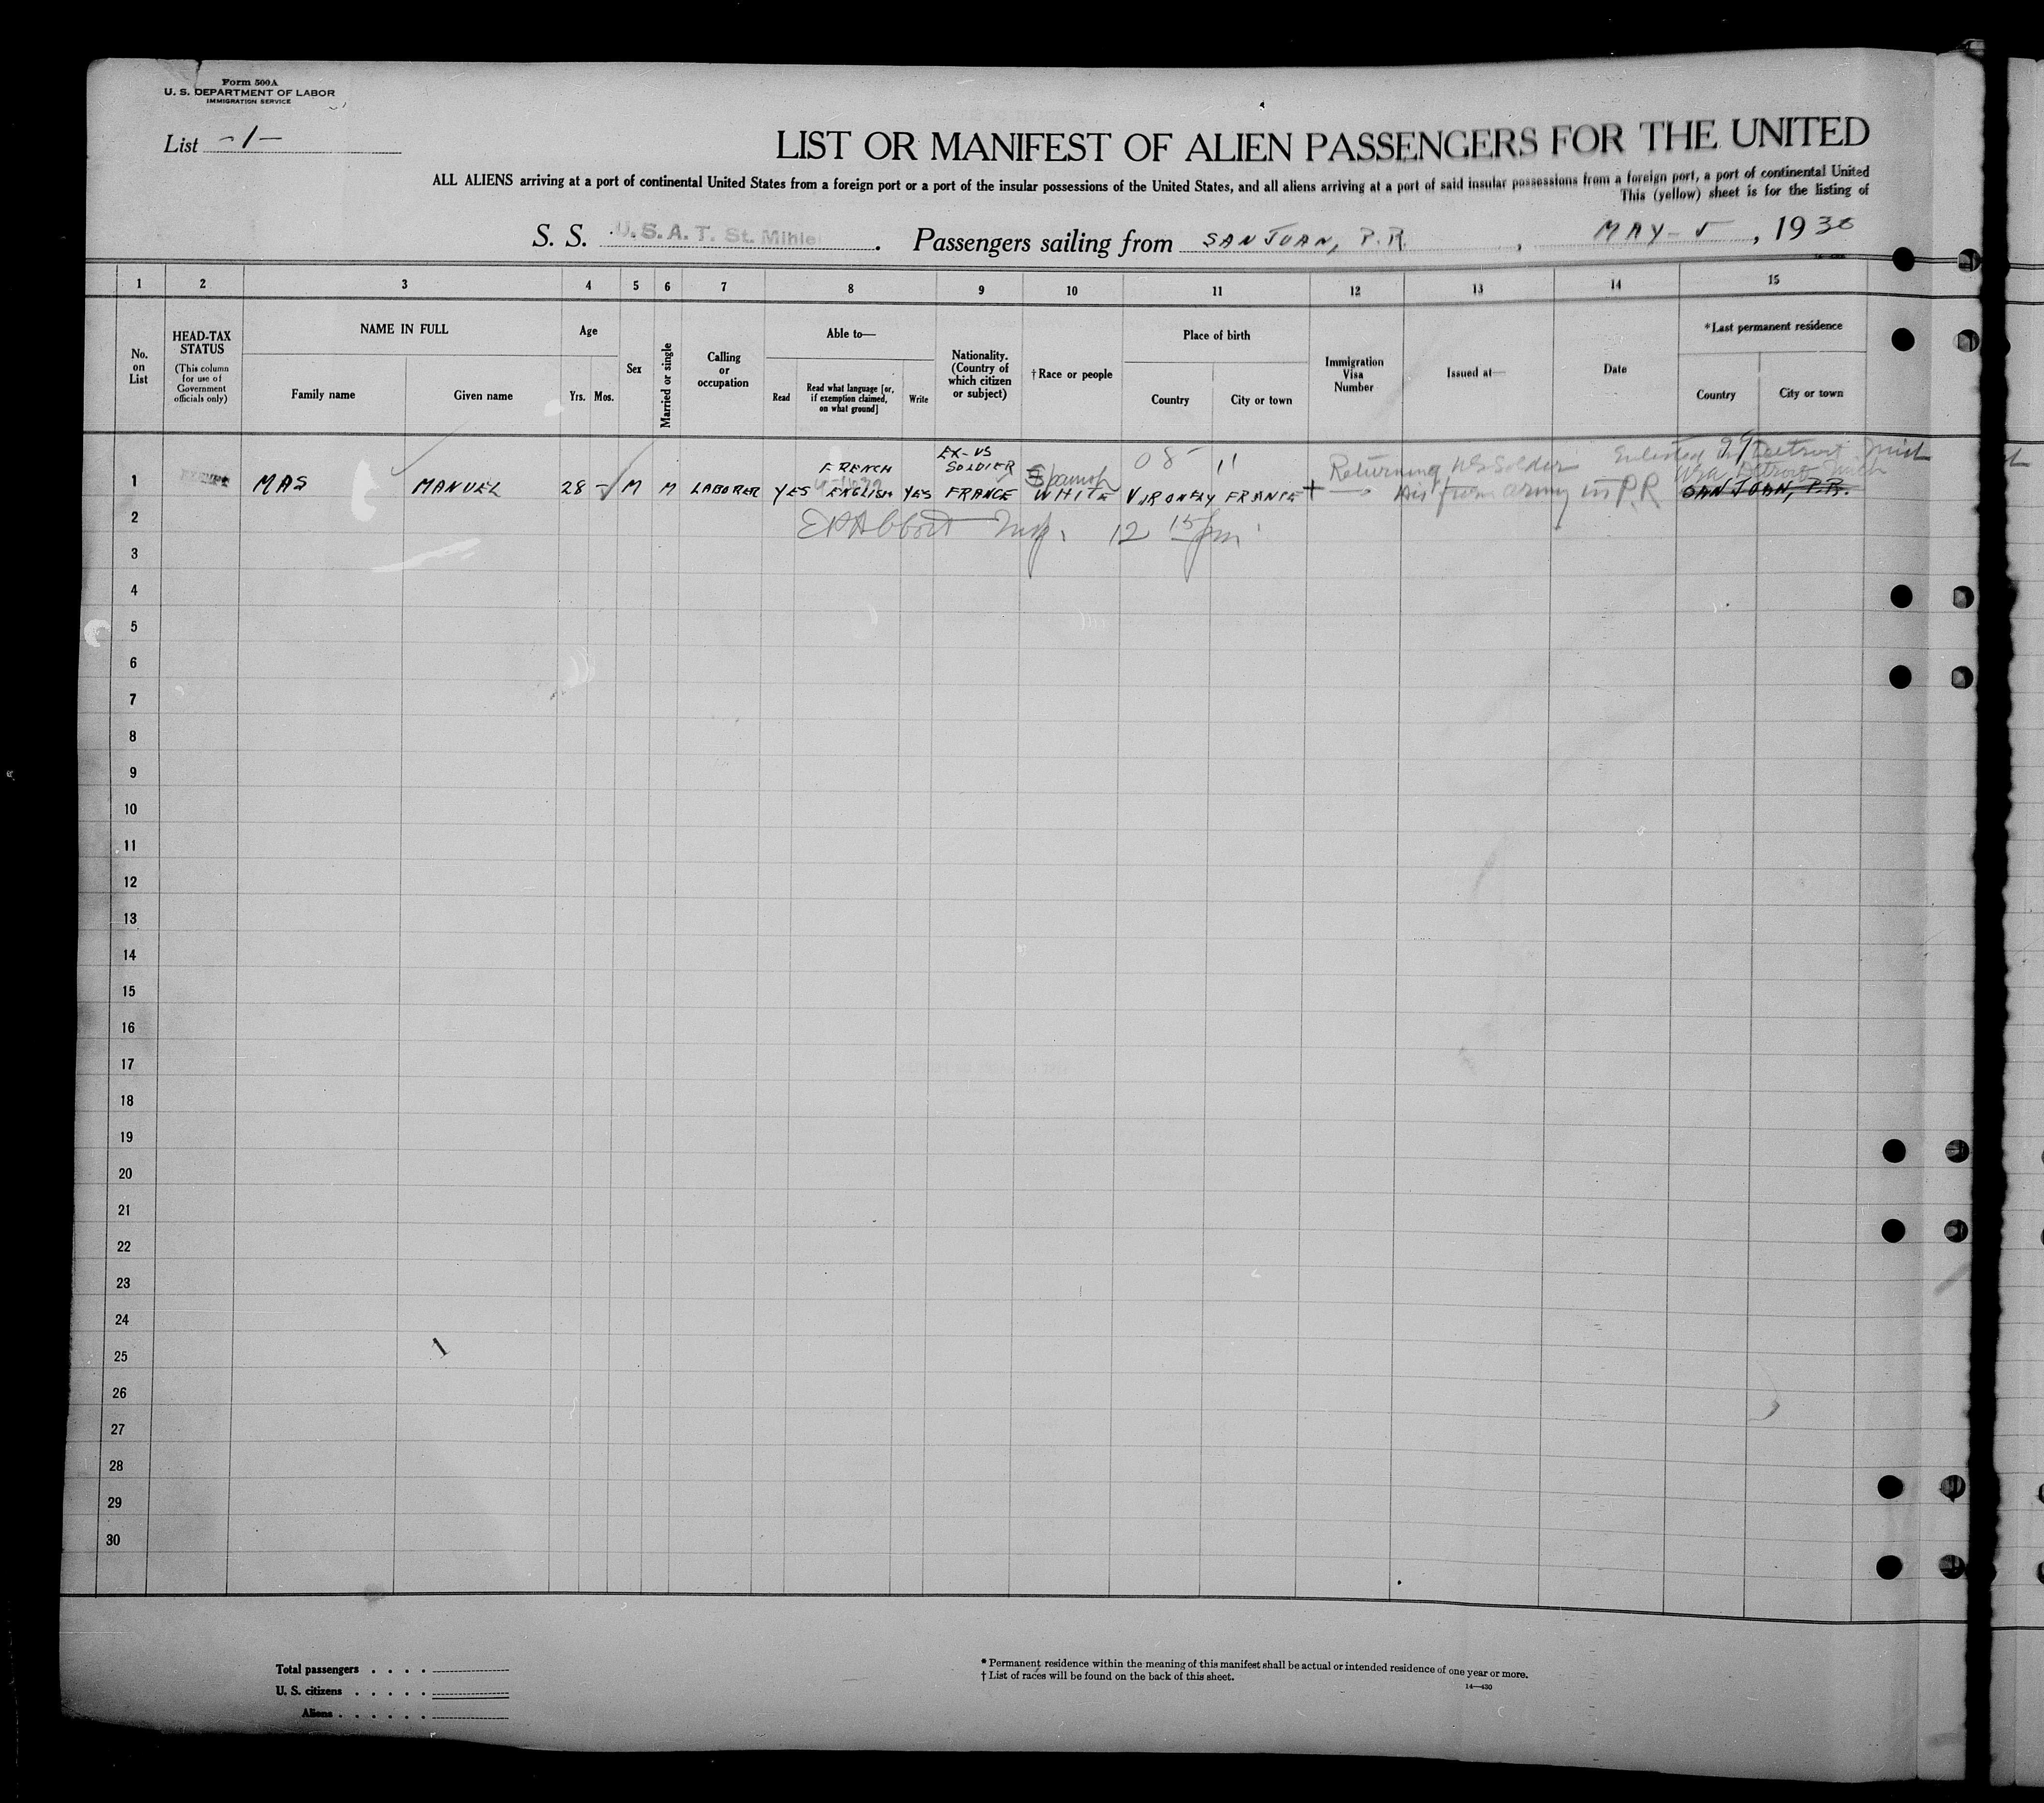 Form 500A
U. S. DEPARTMENT OF LABOR
IMMIGRATION SERVICE
List -1-
LIST OR MANIFEST OF ALIEN PASSENGERS FOR THE UNITED
ALL ALIENS arriving at a port of continental United States from a foreign port or a port of the insular possessions of the United States, and all aliens arriving at a port of said insular possessions from a foreign port, a port of continental United
This (yellow) sheet is for the listing of
S. S. U.S.A.T. St. Mihiel. Passengers sailing from SAN JUAN, P.R., MAY - 5, 1930
1 2 3 4 5 6 7 8 9 10 11 12 13 14 15
No. on List
HEAD-TAX STATUS
(This column for use of Government officials only)
NAME IN FULL
Family name Given name
Age
Yrs. Mos.
Sex
Married or single
Calling or occupation
Able to—
Read
Read what language [or, if exemption claimed, on what ground]
Write
Nationality. (Country of which citizen or subject)
†Race or people
Place of birth
Country City or town
Immigration Visa Number
Issued at—
Date
*Last permanent residence
Country City or town
EX-US
FRENCH SOLDIER Spanish 05 11 Returning US Soldier Enlisted Detroit Mich
1 EXEMPT MAS MANUEL 28 - M M LABORER YES ENGLISH YES FRANCE WHITE FRANCE Dis from army in P.R SAN JUAN, P.R.
Detroit Mich
2 EP Abbott Insp. 12 15 pm
3
4
5
6
7
8
9
10
11
12
13
14
15
16
17
18
19
20
21
22
23
24
25
26
27
28
29
30
1
Total passengers . . . .
U. S. citizens . . . . .
Aliens . . . . . .
* Permanent residence within the meaning of this manifest shall be actual or intended residence of one year or more.
† List of races will be found on the back of this sheet.
14—430